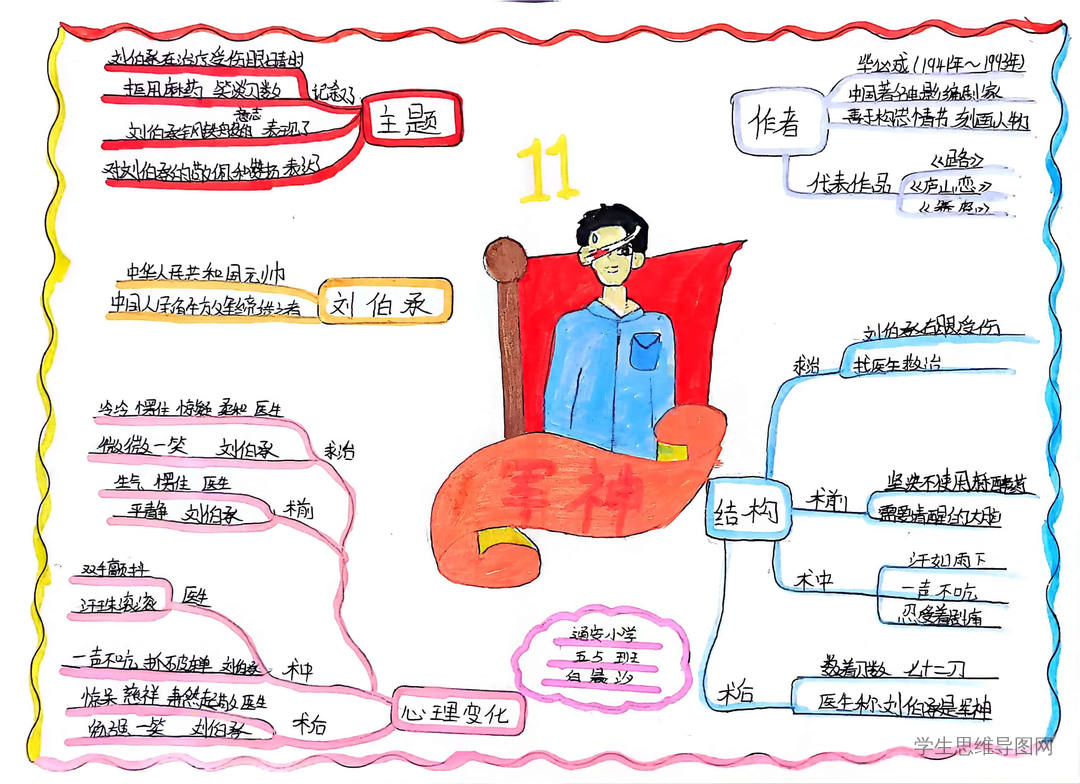 刘伯承在治疗受伤眼睛时
拒用麻药 笑谈刀数
记叙了
刘伯承
意志
表现了
对刘伯承的敬佩和赞扬 表达了
主题
11
作者
(1941年~1993年)
中国著名电影编剧家
善于构思情节 刻画人物
代表作品
《庐山恋》
中华人民共和国元帅
刘伯承
军神
冷冷 愣住 惊疑 柔和 医生
微微一笑 刘伯承
求治
生气 愣住 医生
平静 刘伯承
术前
双手颤抖
汗珠滚滚
医生
一声不吭 抓破床单 刘伯承
术中
惊呆 慈祥 肃然起敬 医生
勉强一笑 刘伯承
术后
心理变化
通安小学
五5班
结构
求治
刘伯承右眼受伤
找医生救治
术前
坚决不使用麻醉药
需要清醒的大脑
术中
汗如雨下
一声不吭
忍受着剧痛
术后
数着刀数 七十二刀
医生称刘伯承是军神
学生思维导图网